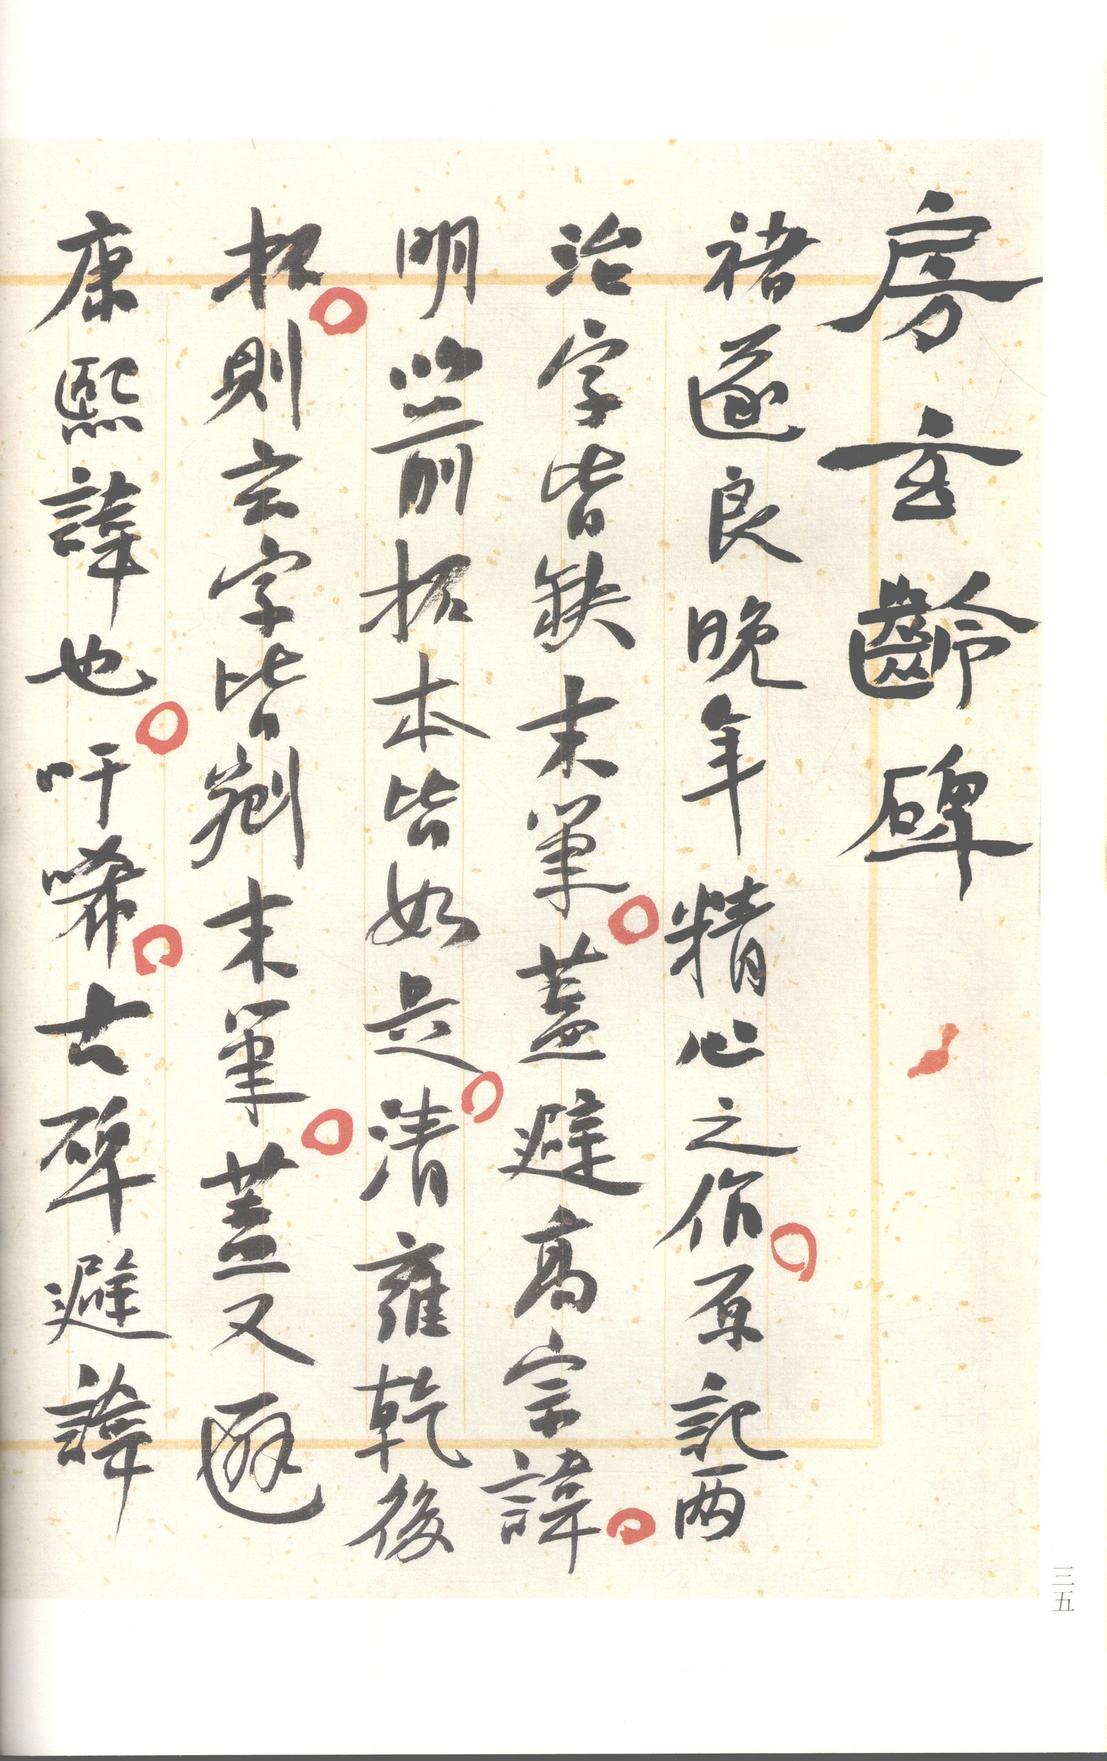 房玄齡碑
褚遂良晚年精心之作原記两
治字皆缺末筆蓋避高宗諱
明以前拓本皆如是清雍乾後
拓則玄字皆剜末筆蓋又避
康熙諱也吁唏古碑避諱
三五